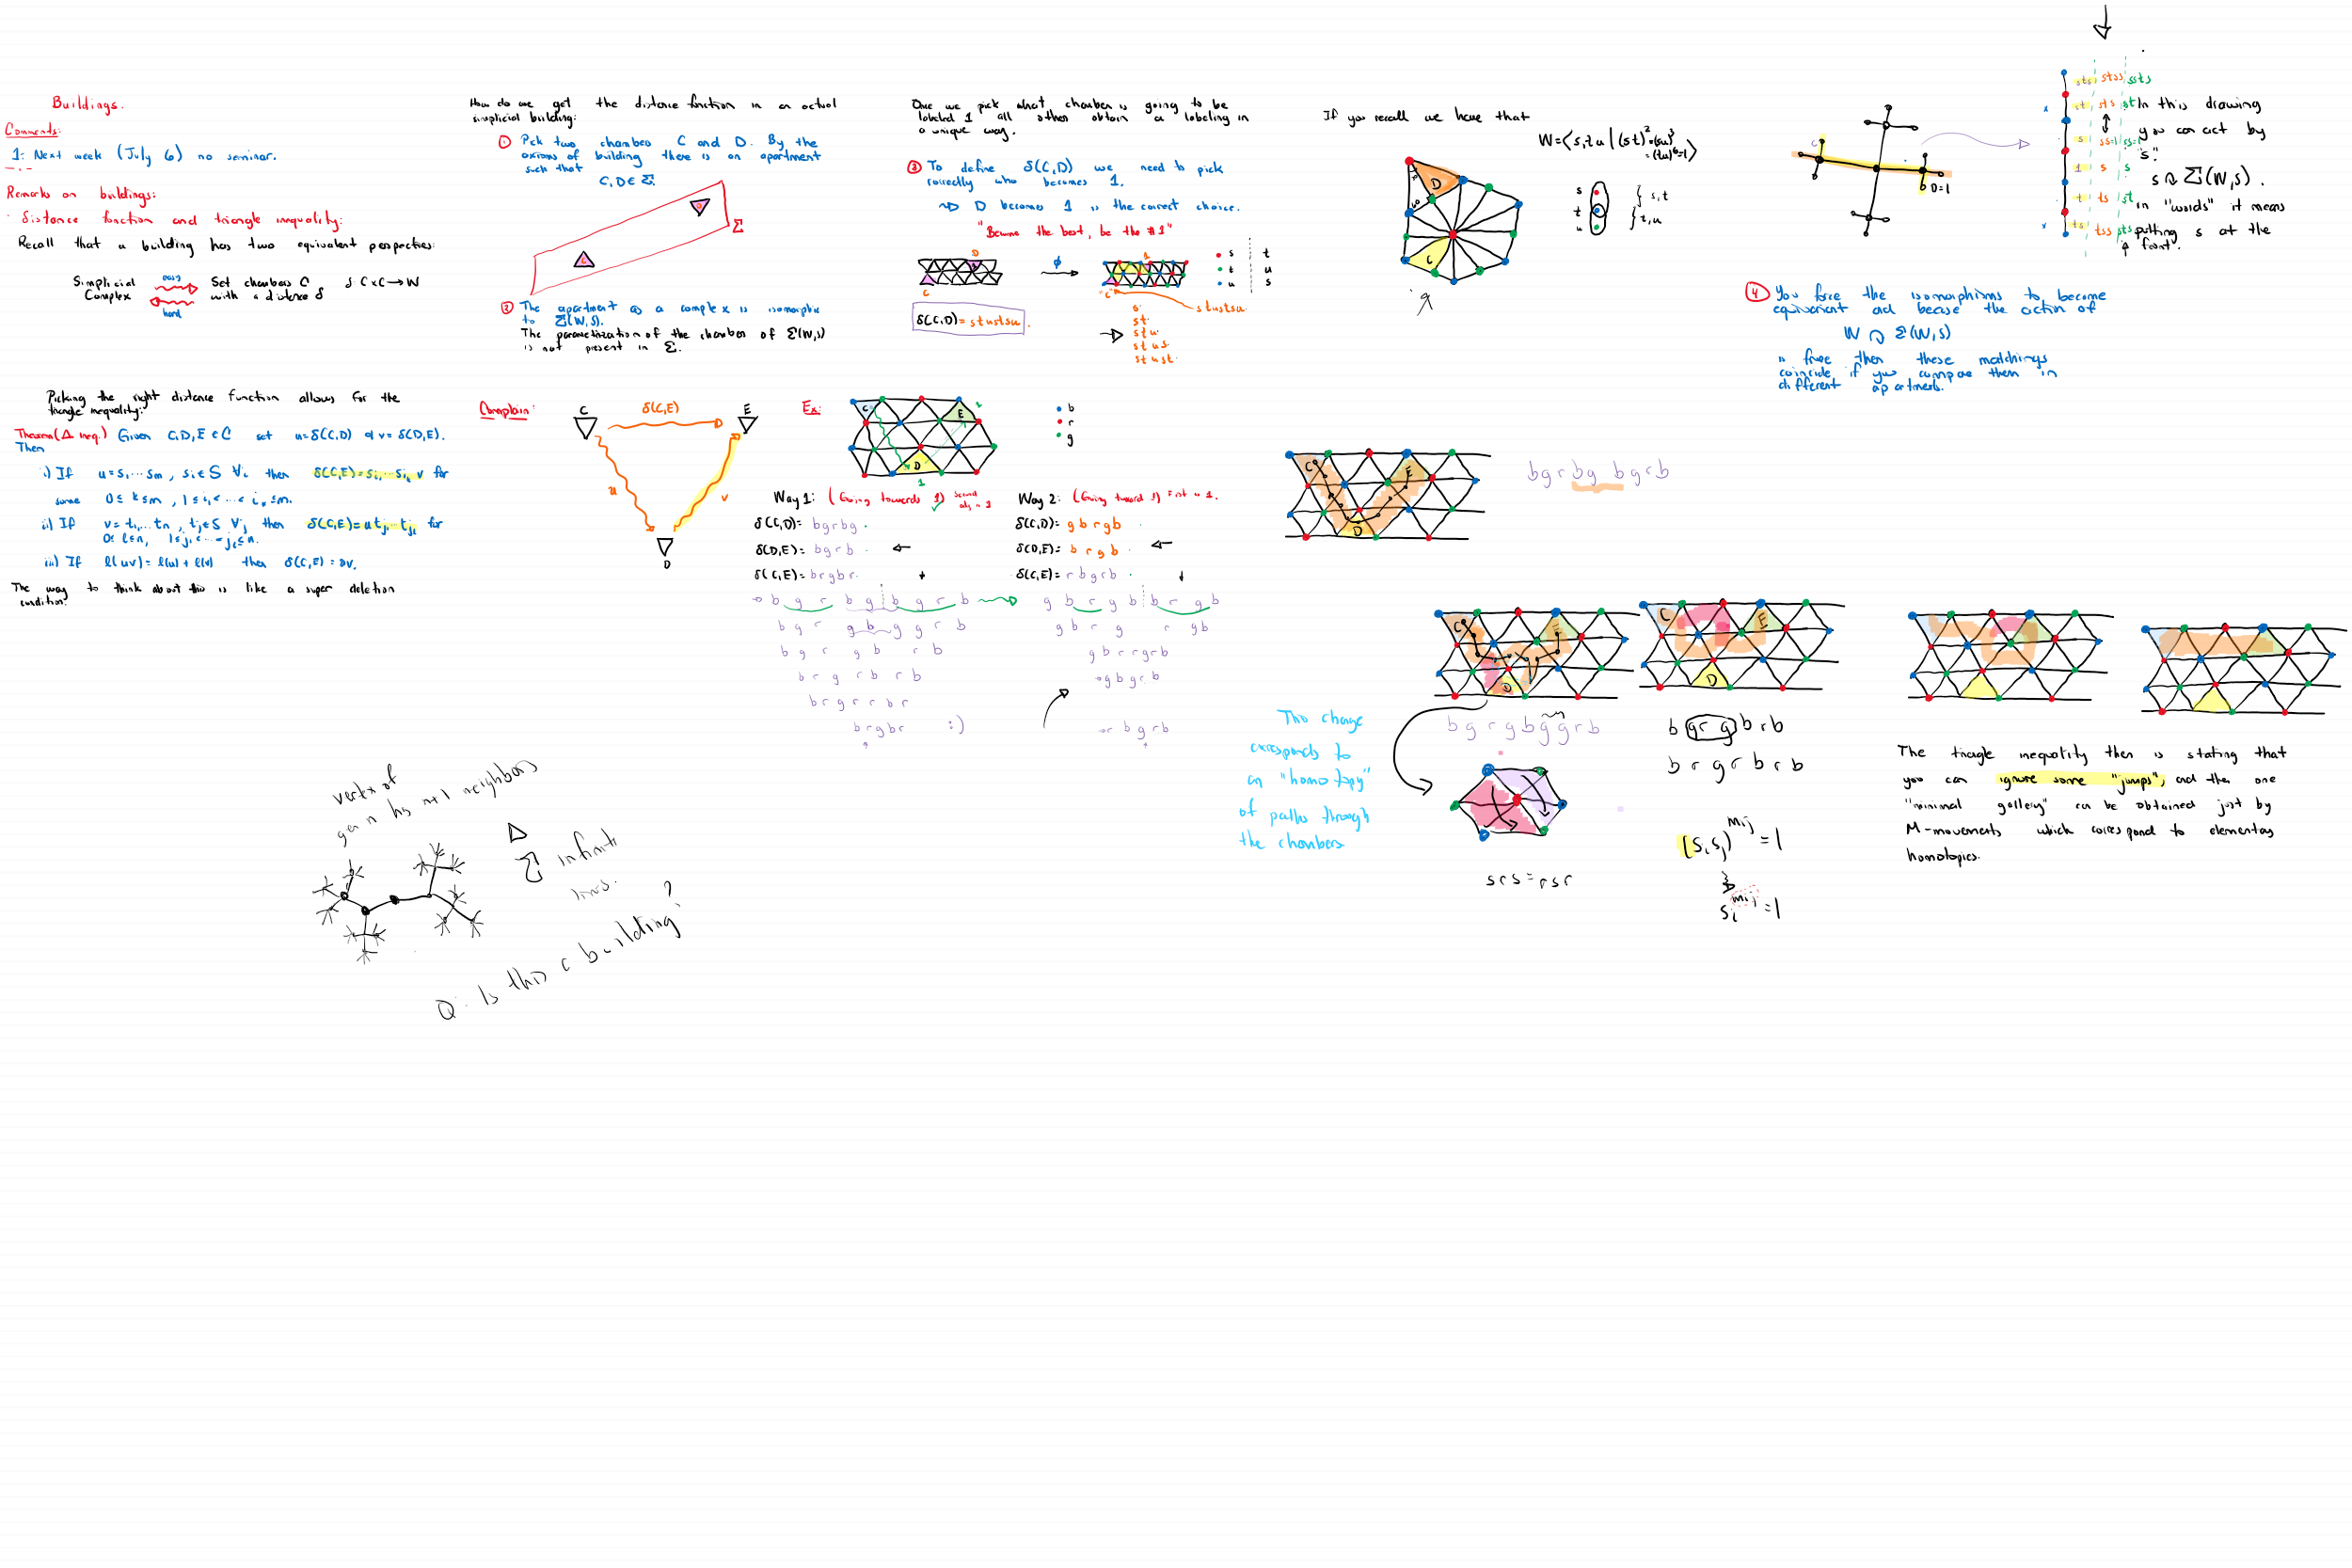 Buildings.
Comments:
1: Next week (July 6) no seminar.
Remarks on buildings:
· distance function and triangle inequality:
Recall that a building has two equivalent perspectives:
Simplicial Complex
easy
hard
Set chambers C with a distance δ
δ: C×C → W
How do we get the distance function in an actual
simplicial building:
① Pick two chambers C and D. By the
axioms of building there is an apartment
such that
C, D ∈ Σ.
Σ
② The apartment as a complex is isomorphic
to Σ(W,S).
The parametrization of the chamber of Σ(W,S)
is not present in Σ.
Once we pick what chamber is going to be
labeled 1 all others obtain a labeling in
a unique way.
③ To define δ(C,D) we need to pick
correctly who becomes 1.
D becomes 1 is the correct choice.
"Become the best, be the #1"
D
C
ϕ
1
"C"
s t
t u
u s
stustsu.
δ(C,D) = stustsu.
s
st
stu
stus
stust
If you recall we have that
W = ⟨s,t,u | (st)²=(su)³
=(tu)⁶=1⟩
D
C
s
t
u
} s,t
} t,u
C
D=1
sts stss ssts
st sts st
s ss=1 ss=1
1 s s
t ts st
ts tss sts
In this drawing
you can act by
"s".
s ↷ Σ(W,S).
in "words" it means
putting s at the
front.
④ You force the isomorphisms to become
equivariant and because the action of
W ↷ Σ(W,S)
is free then these matchings
coincide if you compare them in
different apartments.
Picking the right distance function allows for the
triangle inequality:
Theorem (Δ ineq.) Given C,D,E ∈ C set u=δ(C,D) & v=δ(D,E).
Then
i) If u=s₁···sₘ, sᵢ∈S ∀i then δ(C,E)=sᵢ₁···sᵢₖ v for
some 0≤k≤m, 1≤i₁<···<iₖ≤m.
ii) If v=t₁...tₙ, tⱼ∈S ∀j then δ(C,E)=u tⱼ₁···tⱼₗ for
0≤l≤n, 1≤j₁<···<jₗ≤n.
iii) If l(uv)=l(u)+l(v) then δ(C,E)=uv.
The way to think about this is like a super deletion
condition.
Complain:
C
δ(C,E)
E
u
v
D
Ex:
C
E
D
1
b
r
g
Way 1: (Going towards 1)
Way 2: (Going toward 1) First is 1.
δ(C,D)= bgrbg.
δ(D,E)= bgrb.
δ(C,E)= brgbr.
δ(C,D)= gbrgb
δ(D,E)= brgb.
δ(C,E)= rbgrb.
b g r b g b g r b
b g r g b g g r b
b g r g b r b
b r g r b r b
b r g r r b r
b r g b r :)
g b r g b b r g b
g b r g r g b
g b r r g r b
g b g r b
r b g r b
C
E
D
b g r b g b g r b
C
E
D
This change
corresponds to
an "homotopy"
of paths through
the chambers
b g r g b g g r b
srs = rsr
C
E
D
b g r g b r b
b r g r b r b
(sᵢsⱼ)^mᵢⱼ = 1
sᵢ^mᵢⱼ = 1
The triangle inequality then is stating that
you can ignore some "jumps", and then one
"minimal gallery" can be obtained just by
M-movements which correspond to elementary
homotopies.
vertex of
gen n has n+1 neighbors
Δ
Σ infinite
lines.
Q: Is this a building?